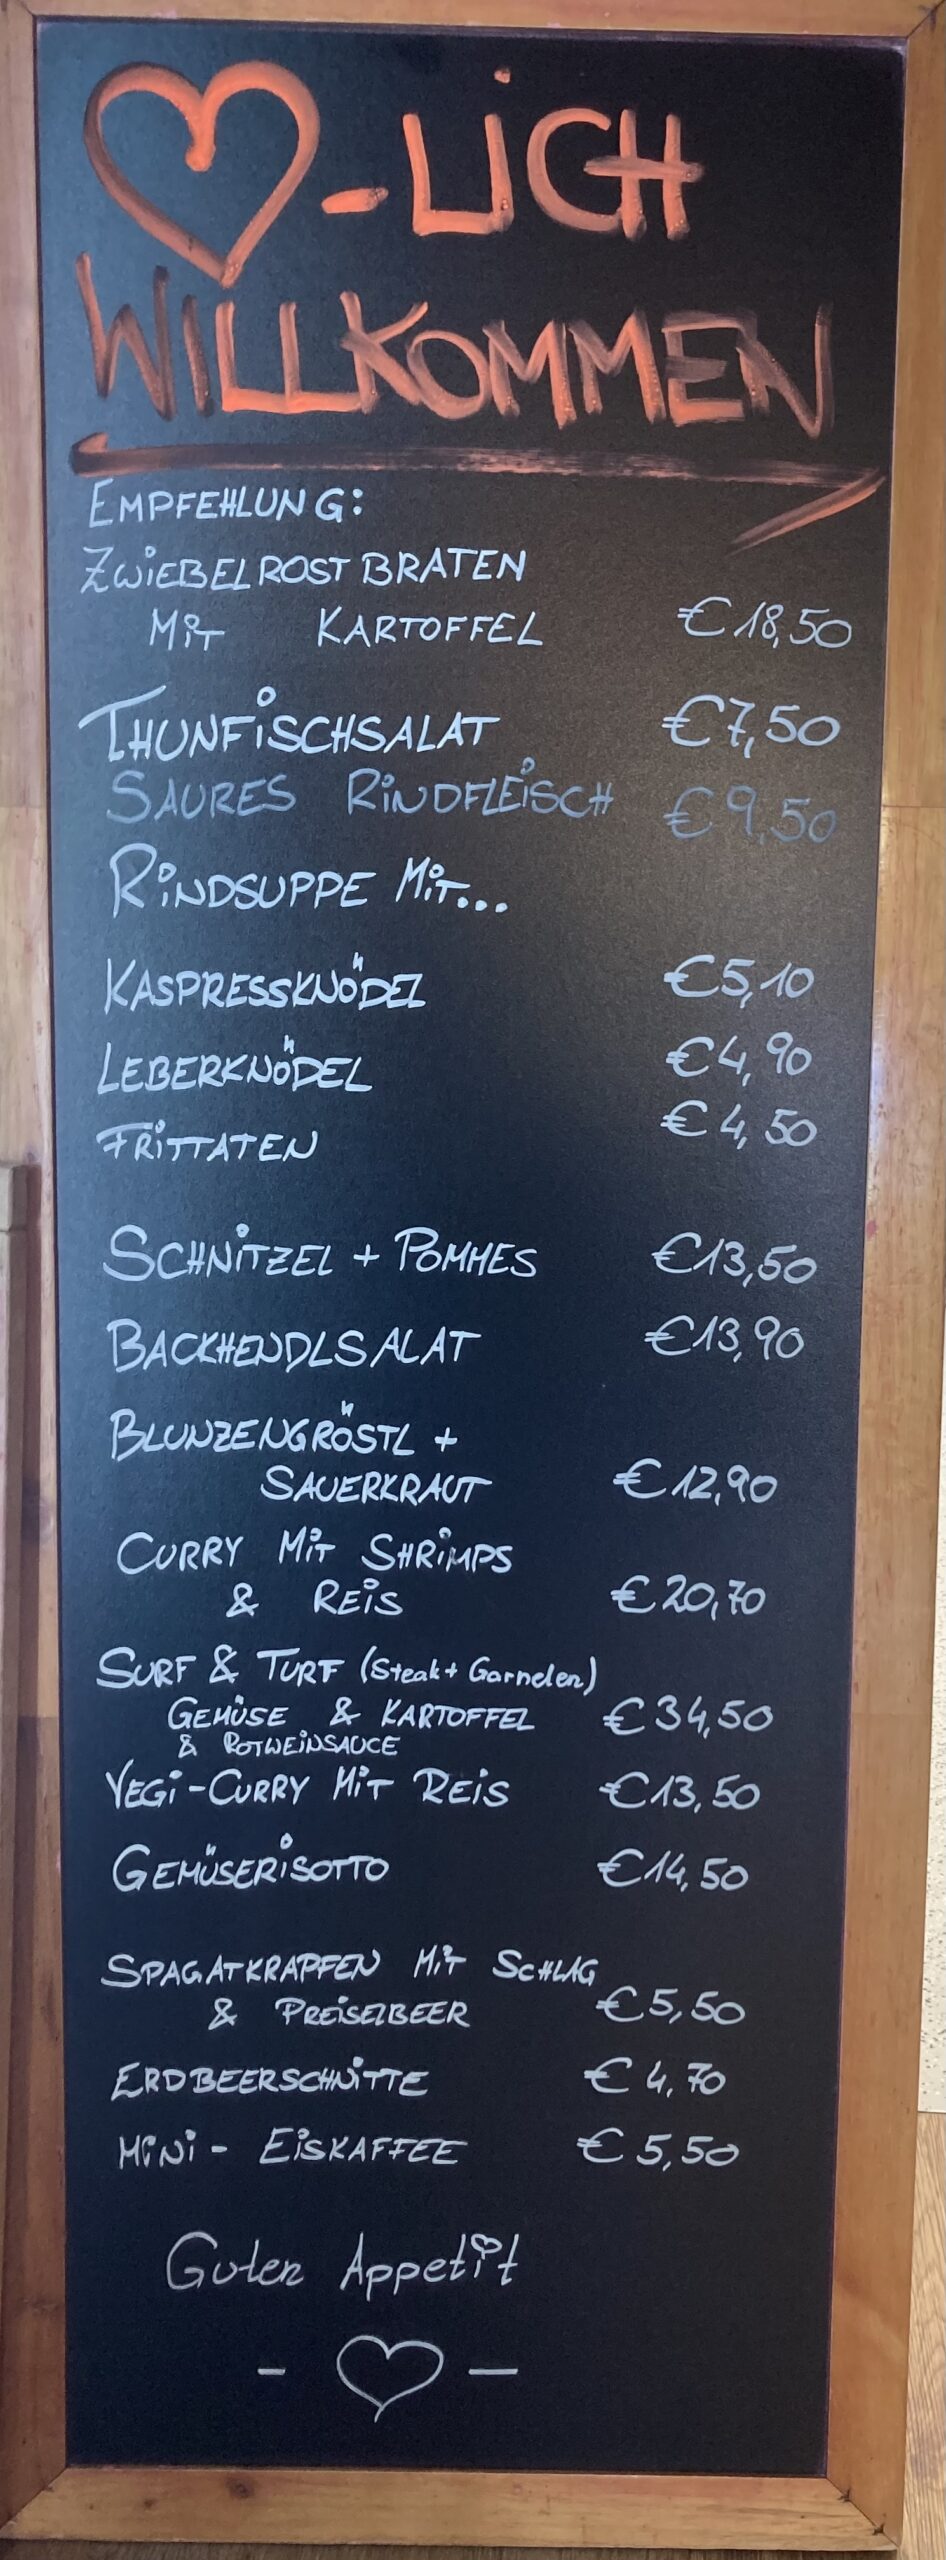 ♡-LICH
WILLKOMMEN
EMPFEHLUNG:
ZWIEBELROSTBRATEN
MIT KARTOFFEL €18,50
THUNFISCHSALAT €7,50
SAURES RINDFLEISCH €9,50
RINDSUPPE MIT...
KASPRESSKNÖDEL €5,10
LEBERKNÖDEL €4,90
FRITTATEN €4,50
SCHNITZEL + POMMES €13,50
BACKHENDLSALAT €13,90
BLUNZENGRÖSTL +
SAUERKRAUT €12,90
CURRY MIT SHRIMPS
& REIS €20,70
SURF & TURF (Steak + Garnelen)
GEMÜSE & KARTOFFEL €34,50
& ROTWEINSAUCE
VEGI-CURRY MIT REIS €13,50
GEMÜSERISOTTO €14,50
SPAGATKRAPFEN MIT SCHLAG
& PREISELBEER €5,50
ERDBEERSCHNITTE €4,70
MINI-EISKAFFEE €5,50
Guten Appetit
- ♡ -